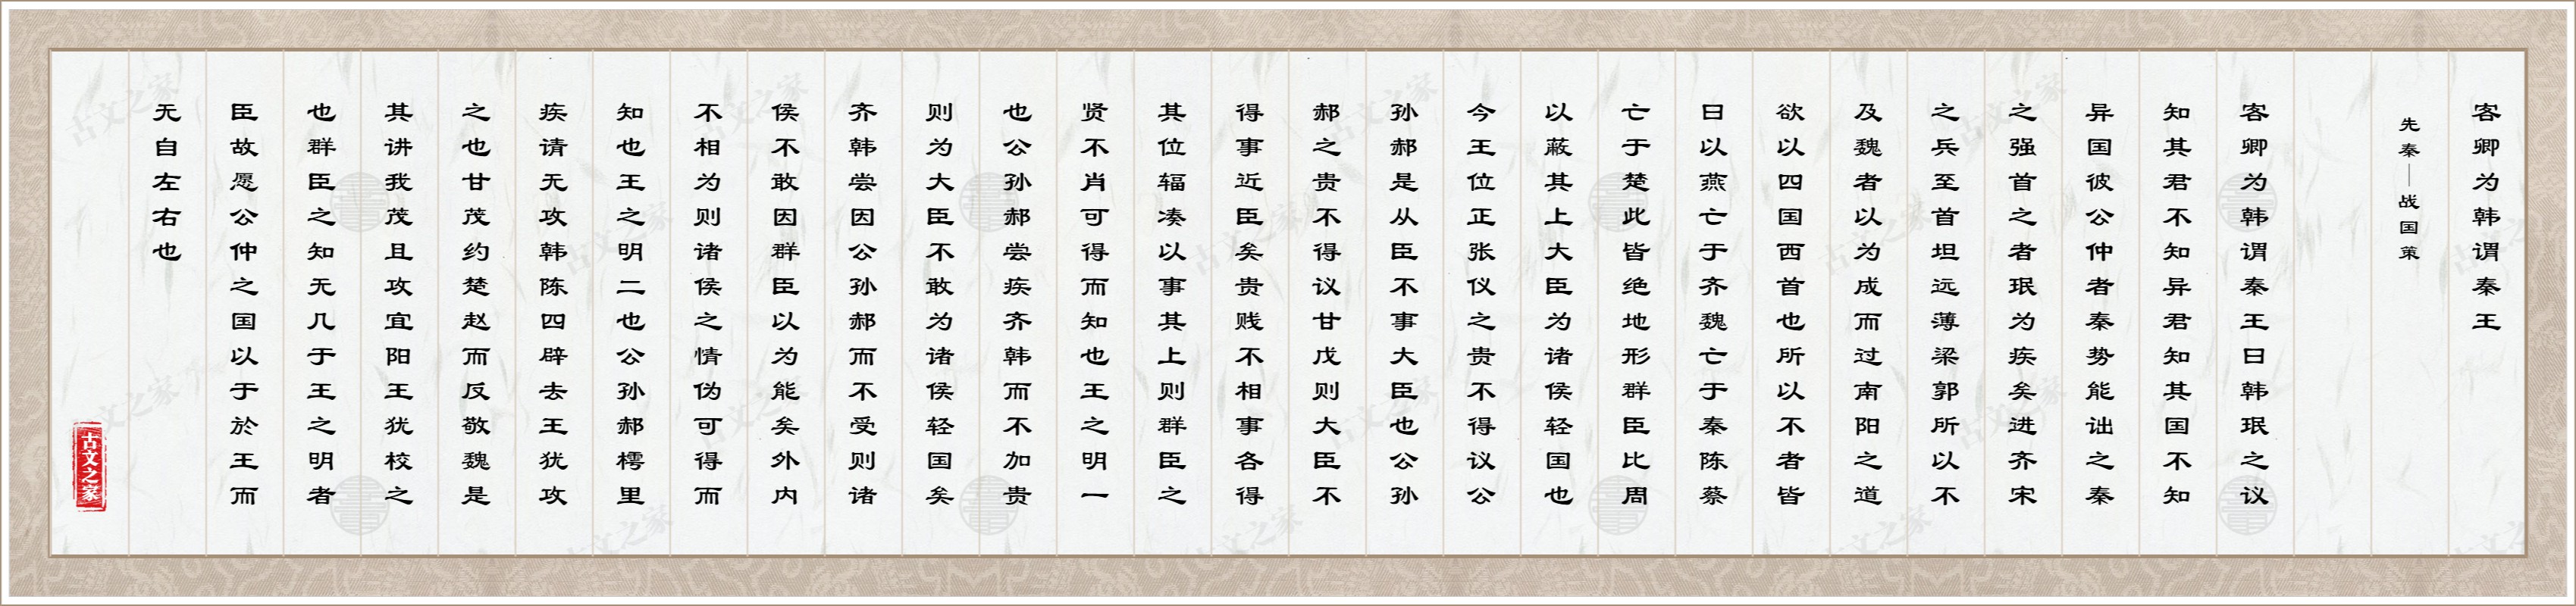 客卿为韩谓秦王
先秦｜战国策
客卿为韩谓秦王曰韩珉之议
知其君不知异君知其国不知
异国彼公仲者秦势能诎之秦
之强首之者珉为疾矣进齐宋
之兵至首坦远薄梁郭所以不
及魏者以为成而过南阳之道
欲以四国西首也所以不者皆
曰以燕亡于齐魏亡于秦陈蔡
亡于楚此皆绝地形群臣比周
以蔽其上大臣为诸侯轻国也
今王位正张仪之贵不得议公
孙郝是从臣不事大臣也公孙
郝之贵不得议甘戊则大臣不
得事近臣矣贵贱不相事各得
其位辐凑以事其上则群臣之
贤不肖可得而知也王之明一
也公孙郝尝疾齐韩而不加贵
则为大臣不敢为诸侯轻国矣
齐韩尝因公孙郝而不受则诸
侯不敢因群臣以为能矣外内
不相为则诸侯之情伪可得而
知也王之明二也公孙郝樗里
疾请无攻韩陈四辟去王犹攻
之也甘茂约楚赵而反敬魏是
其讲我茂且攻宜阳王犹校之
也群臣之知无几于王之明者
臣故愿公仲之国以于於王而
无自左右也
古文之家